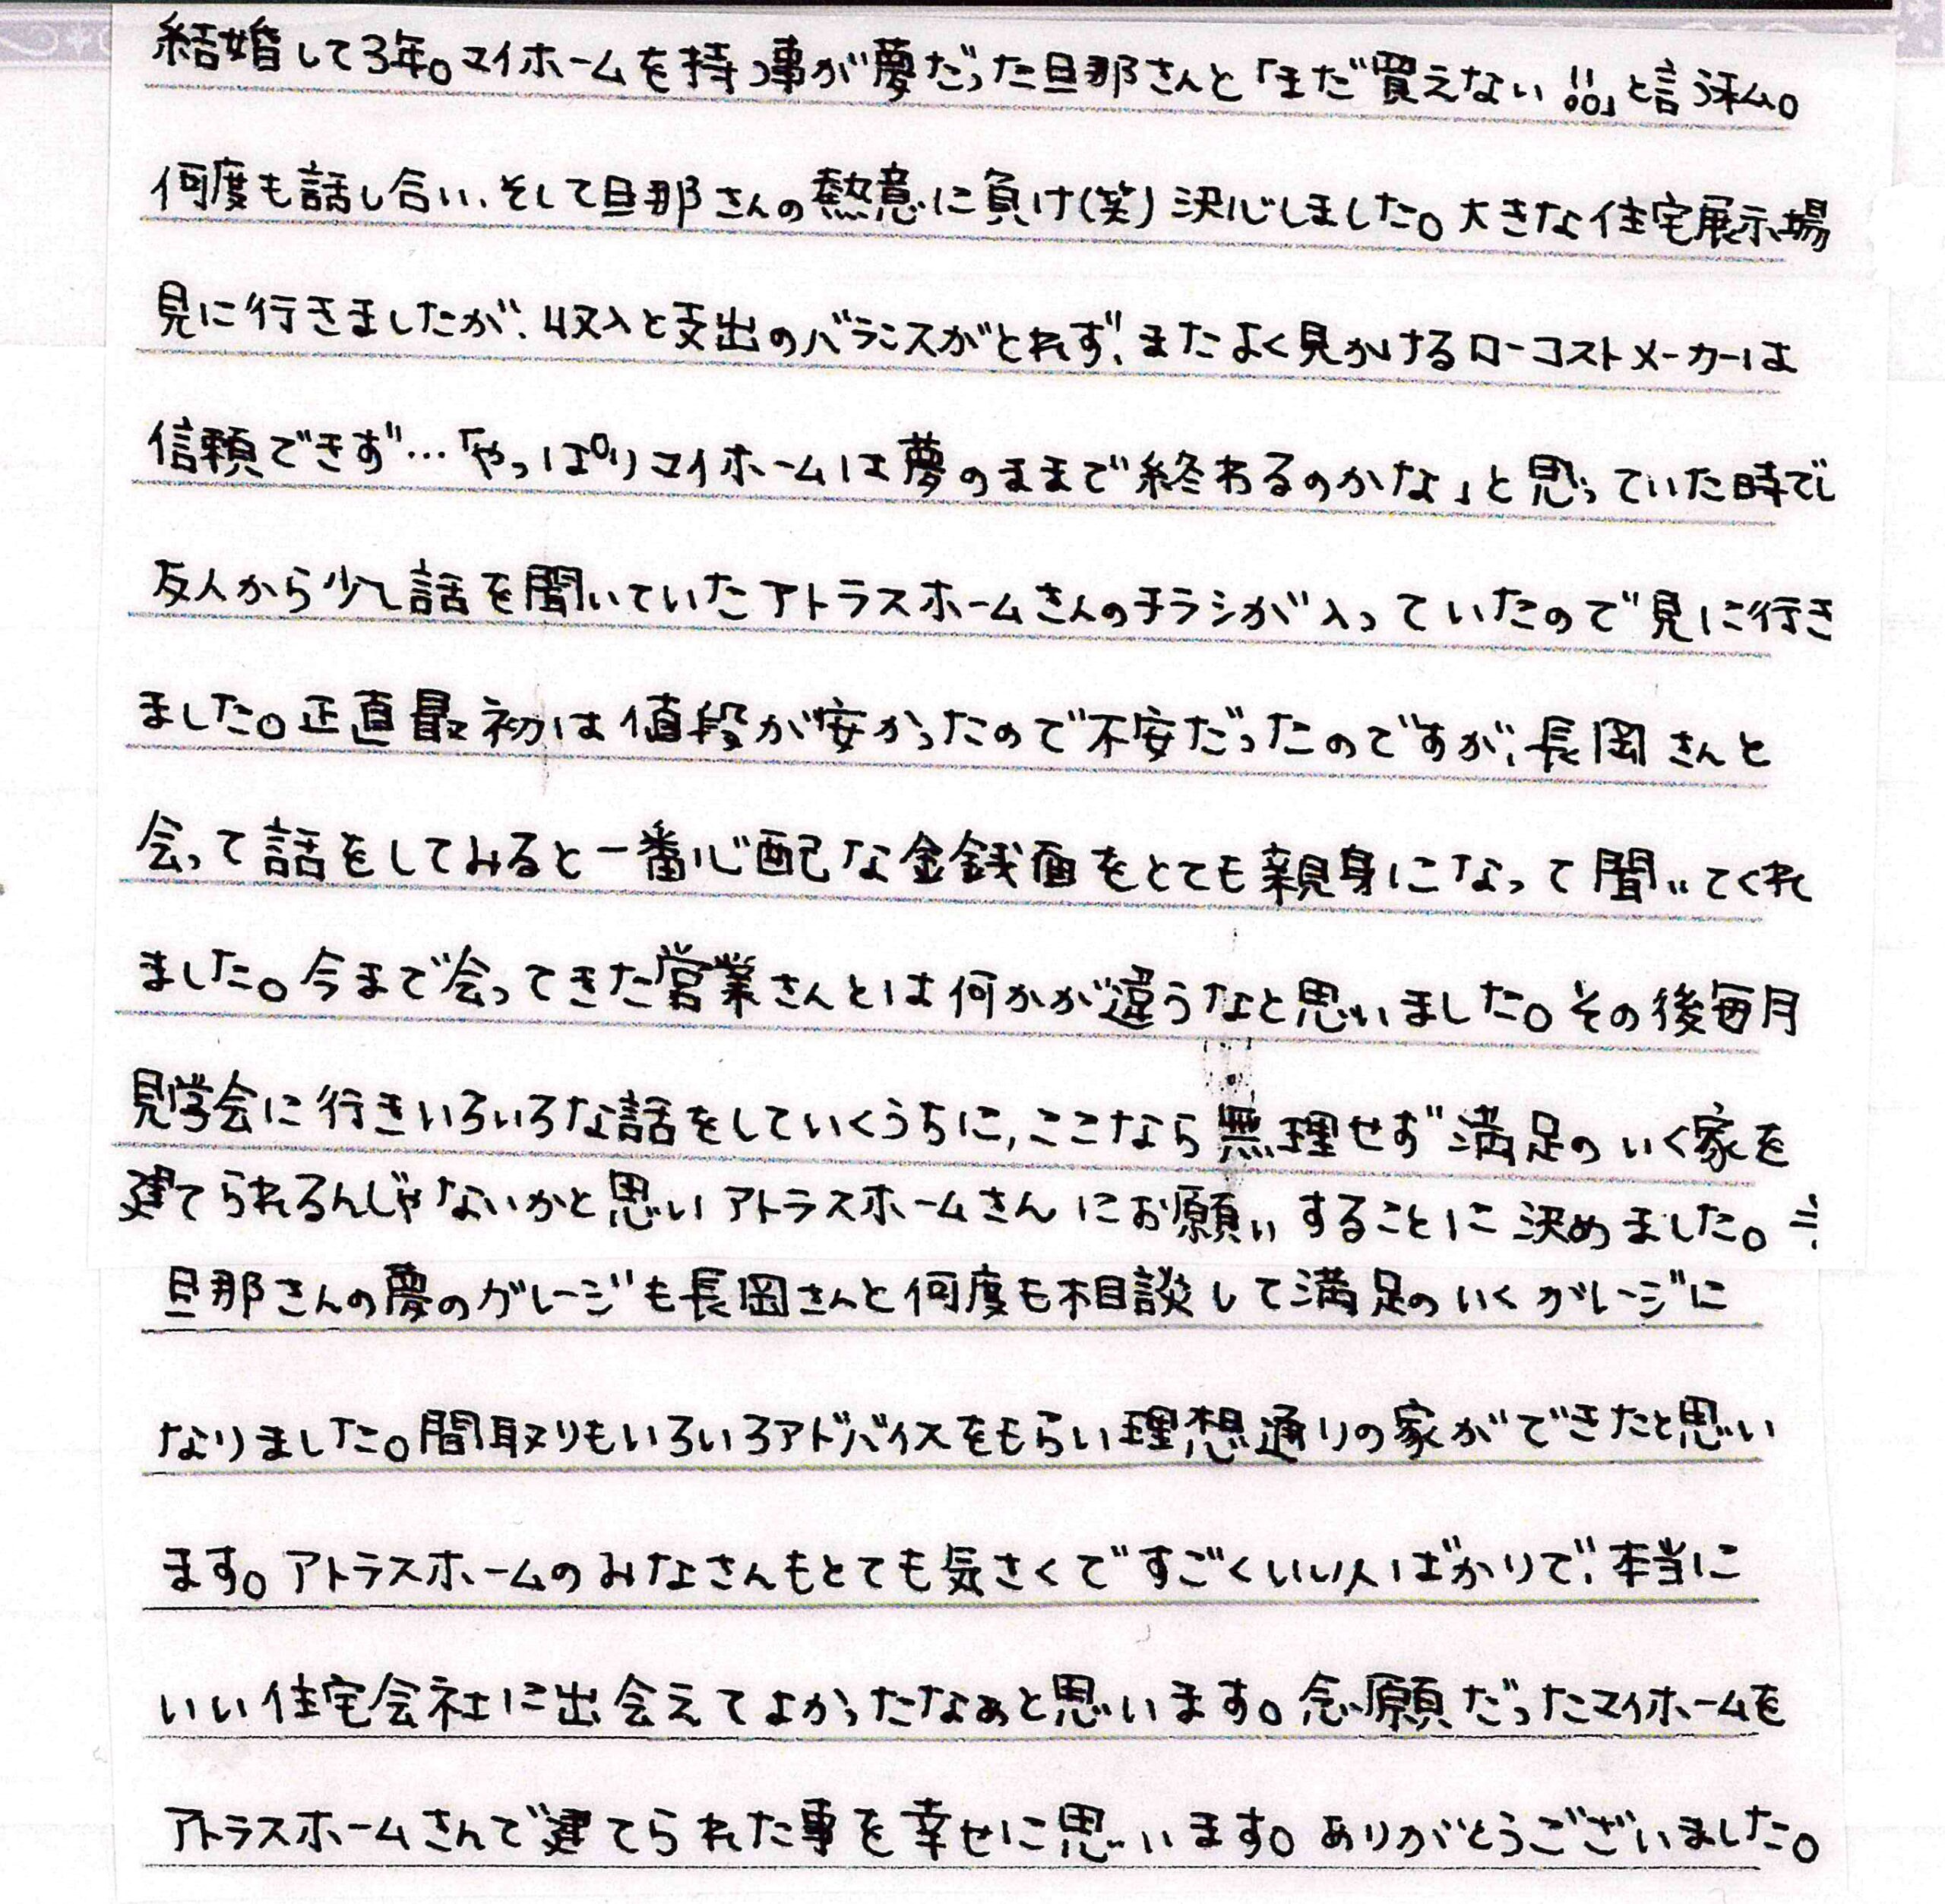 結婚して3年。マイホームを持つ事が夢だった旦那さんと「まだ買えない!!」と言う私。
何度も話し合い、そして旦那さんの熱意に負け(笑)決心しました。大きな住宅展示場
見に行きましたが、収入と支出のバランスがとれず、またよく見かけるローコストメーカーは
信頼できず…「やっぱりマイホームは夢のままで終わるのかな」と思っていた時でし
友人から少し話を聞いていたアトラスホームさんのチラシが入っていたので見に行き
ました。正直最初は値段が安かったので不安だったのですが、長岡さんと
会って話をしてみると一番心配な金銭面をとても親身になって聞いてくれ
ました。今まで会ってきた営業さんとは何かが違うなと思いました。その後毎月
見学会に行きいろいろな話をしていくうちに、ここなら無理せず満足のいく家を
建てられるんじゃないかと思いアトラスホームさんにお願いすることに決めました。
旦那さんの夢のガレージも長岡さんと何度も相談して満足のいくガレージに
なりました。間取りもいろいろアドバイスをもらい理想通りの家ができたと思い
ます。アトラスホームのみなさんもとても気さくですごくいい人ばかりで、本当に
いい住宅会社に出会えてよかったなぁと思います。念願だったマイホームを
アトラスホームさんで建てられた事を幸せに思います。ありがとうございました。